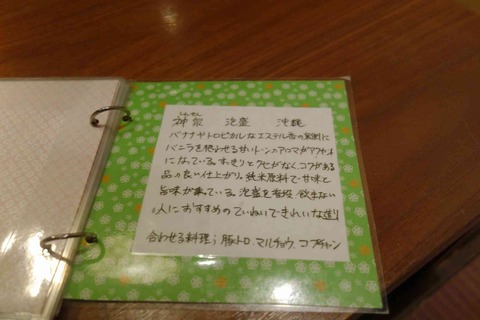 しんせん
神泉 泡盛 沖縄
バナナやトロピカルなエステル香の裏側に
バニラを思わせる甘いトーンのアロマがアクセント
になっている。すっきりとクセがなく、コクがある
品の良い仕上がり。純米原料で甘味と
旨味が乗っている。泡盛を普段飲まない
人におすすめのていねいできれいな造り
合わせる料理;豚トロ、マルチョウ、コプチャン